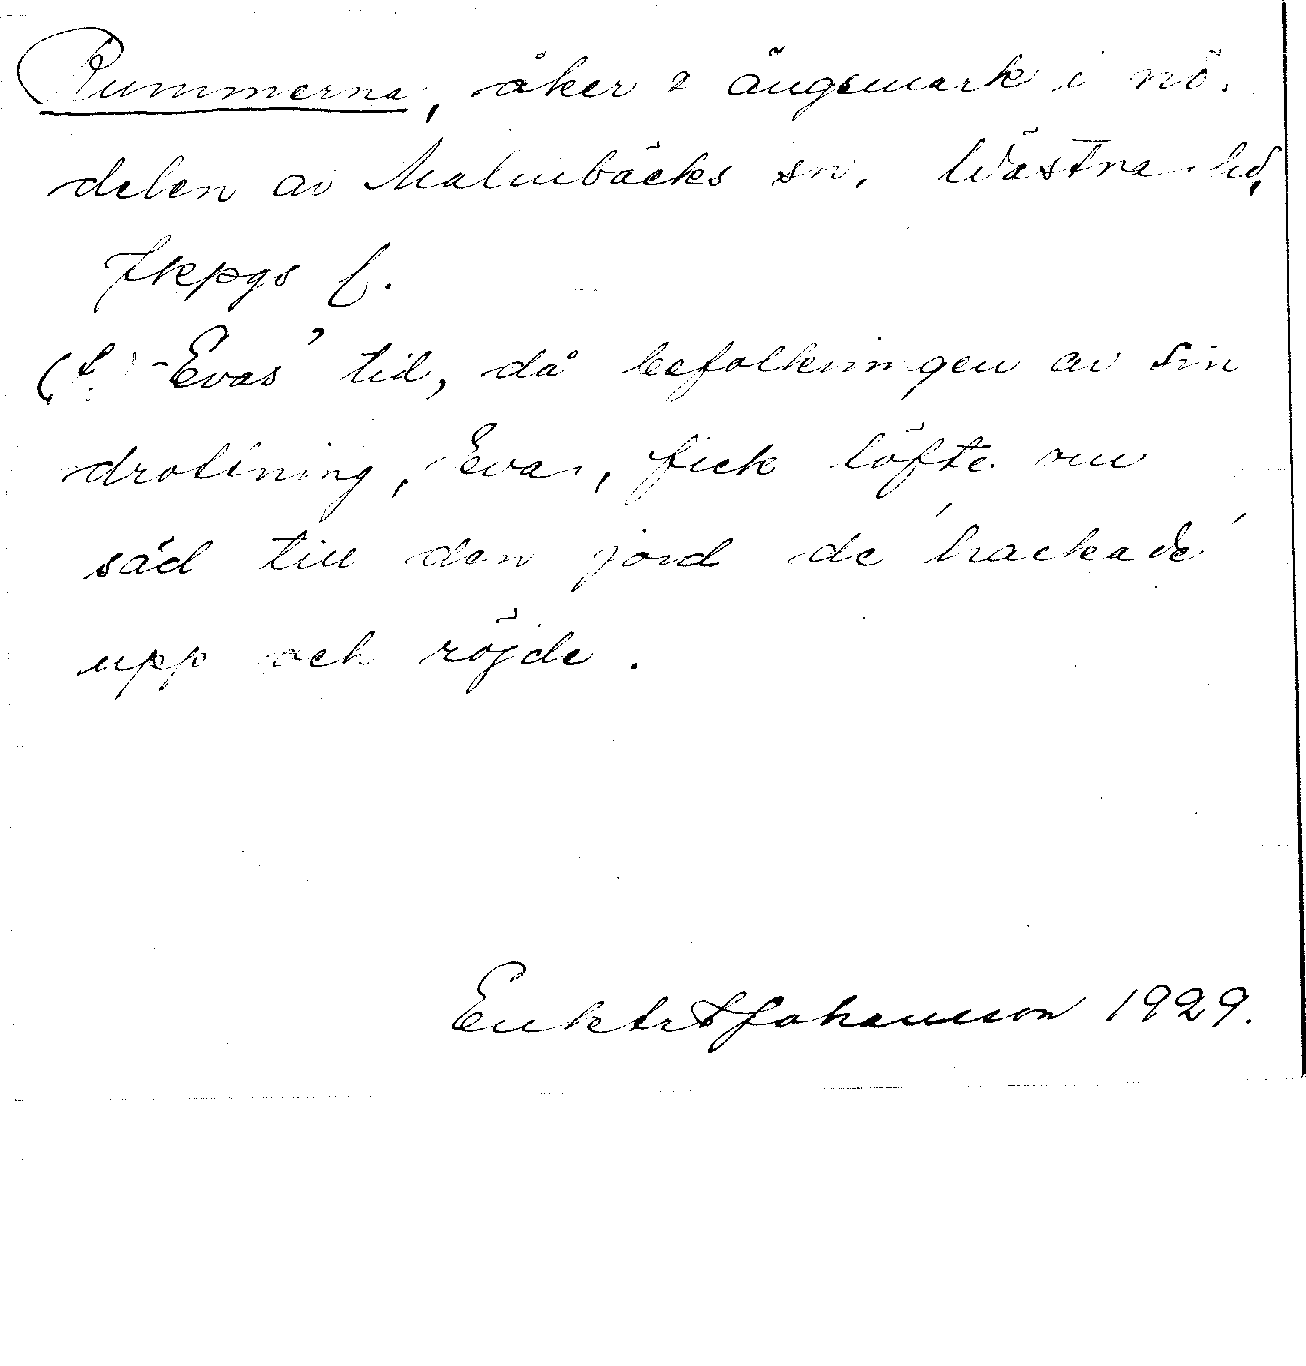 Rummerna, åker & ängsmark i nö.
delen av Malmbäcks sn. Västra hd,
Jkpgs l.
(?) Evas' tid, då befolkningen av sin
drottning, Eva, fick löfte om
säd till den jord de 'hackade'
upp och röjde.
Johansson 1929.